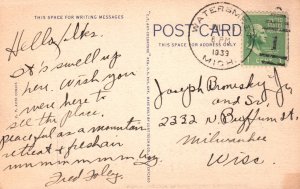 THIS SPACE FOR WRITING MESSAGES
Hello
It's swell up
here. Wish you
were here to
see the place.
peaceful as a mountain
retreat & fresh air
Fred Foley
POST CARD
THIS SPACE FOR ADDRESS ONLY
WATERSMEET
1939
MICH.
1
Joseph Bronesky Jr.
and Sr.
2332 N Buffum St.
Milwaukee
Wisc.